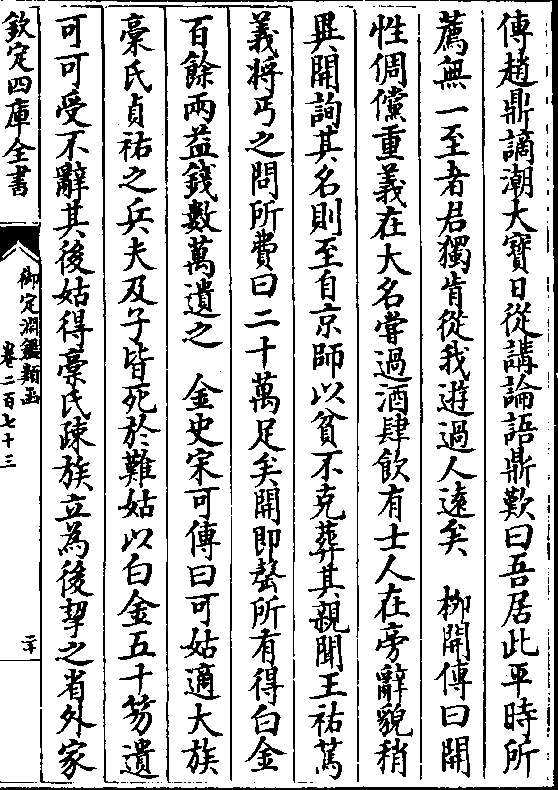 傳趙鼎謫潮大寶日從講論語鼎歎曰吾居此平時所
薦無一至者君獨肯從我遊過人逺矣　栁開傳曰開
性倜儻重義在大名嘗過酒肆飲有士人在旁辭貌稍
異開詢其名則至自京師以貧不克葬其親聞王祐篤
義將丐之問所費曰二十萬足矣開即罄所有得白金
百餘兩益錢數萬遺之　金史宋可傳曰可姑適大族
稾氏貞祐之兵夫及子皆死於難姑以白金五十笏遺
可可受不辭其後姑得稾氏疎族立為後挈之省外家
欽定四庫全書
御定淵鑑類函
卷二百七十三
二十